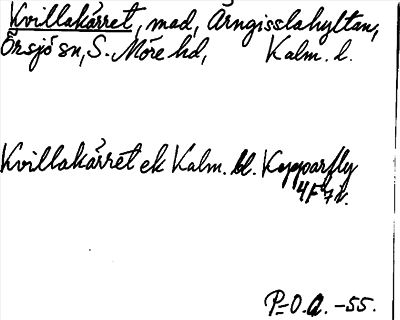 Kvillakärret, mad, Ärngisslahyltan,
Örsjö sn, S. Möre hd, Kalm. l.
Kvillakärret ek Kalm. bl. Kopparfly
4F 7i.
P.-O.A. -55.